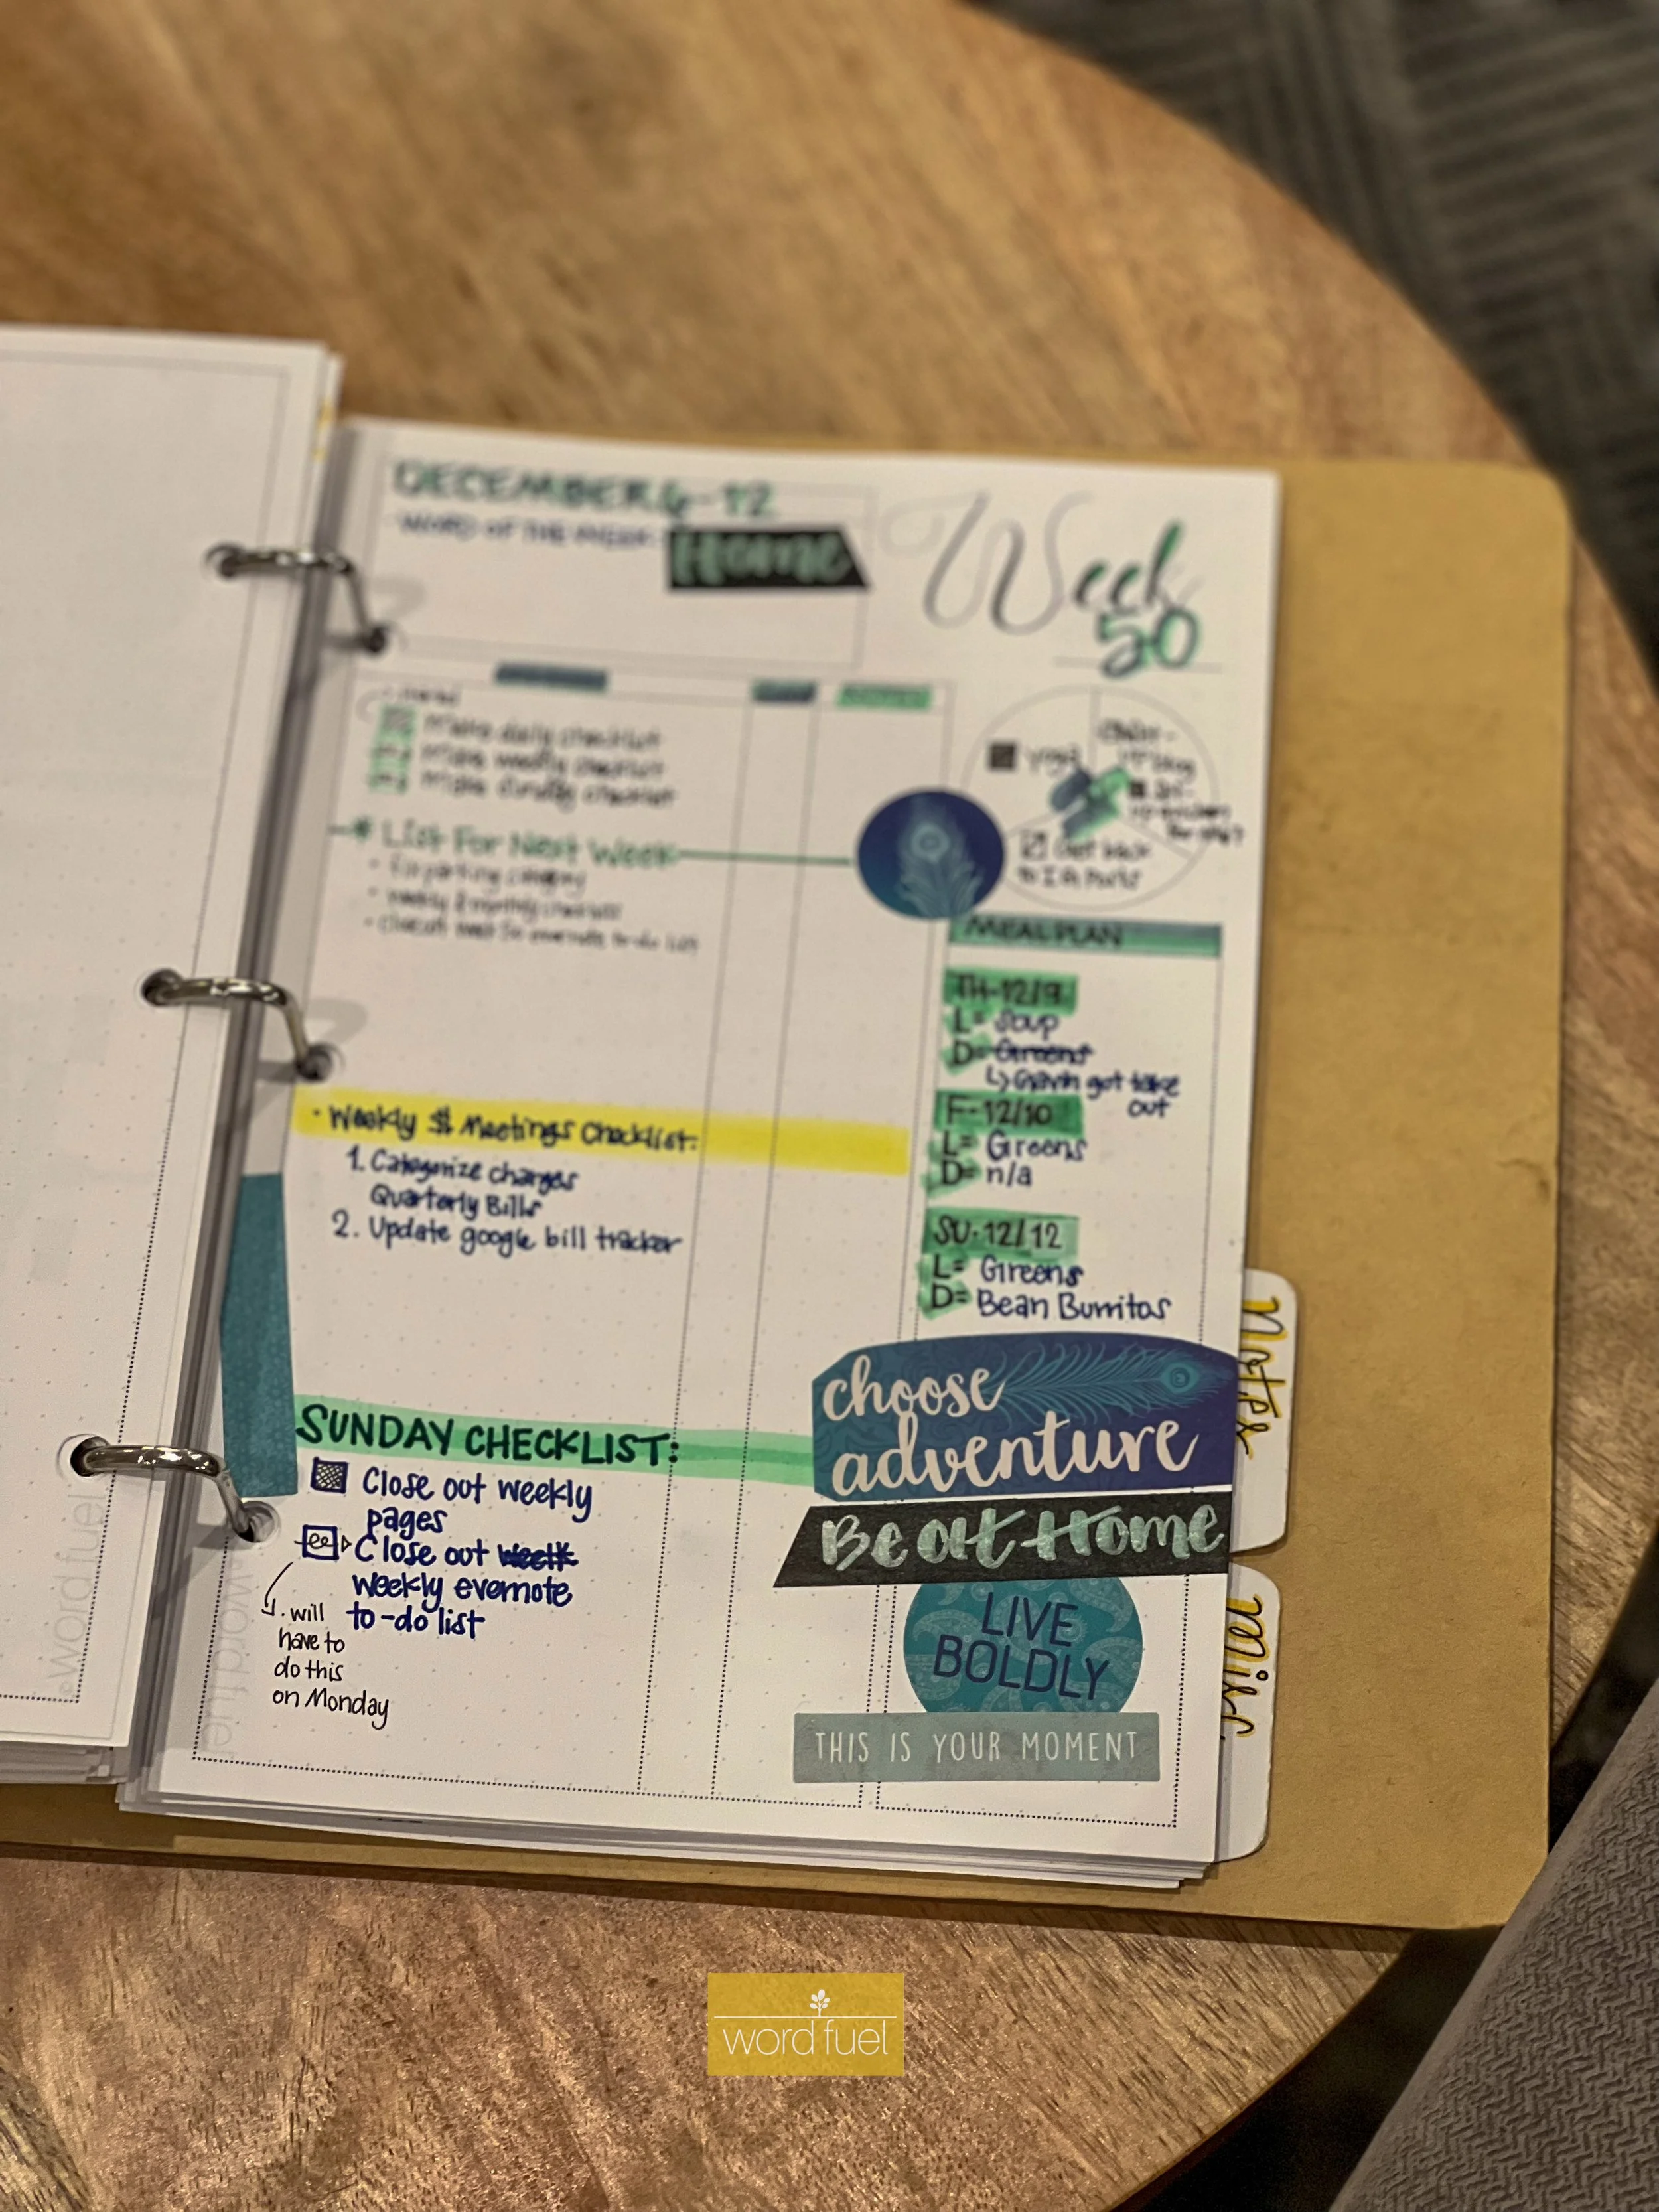 DECEMBER 6-12
WORD OF THE WEEK: Home
Week
50
Make daily checklist
Make weekly checklist
Make Sunday checklist
* List For Next Week
yoga
MEAL PLAN
TH-12/9
L= Soup
D= Greens
↳ Gavin got take
out
F-12/10
L= Greens
D= n/a
SU-12/12
L= Greens
D= Bean Burritos
• Weekly $ Meetings Checklist:
1. Categorize charges
Quarterly Bills
2. Update google bill tracker
SUNDAY CHECKLIST:
Close out weekly
pages
Close out week
weekly evernote
to-do list
will
have to
do this
on Monday
choose
adventure
Be at Home
LIVE
BOLDLY
THIS IS YOUR MOMENT
Notes
Misc.
©wordfuel
©wordfuel
word fuel